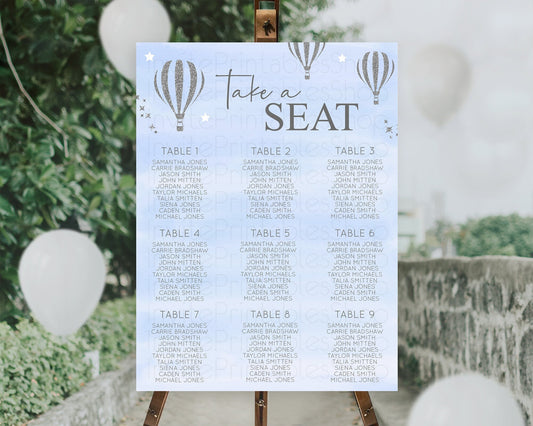 Take a
SEAT
TABLE 1
SAMANTHA JONES
CARRIE BRADSHAW
JASON SMITH
JOHN MITTEN
JORDAN JONES
TAYLOR MICHAELS
TALIA SMITTEN
SIENA JONES
CADEN SMITH
MICHAEL JONES
TABLE 2
SAMANTHA JONES
CARRIE BRADSHAW
JASON SMITH
JOHN MITTEN
JORDAN JONES
TAYLOR MICHAELS
TALIA SMITTEN
SIENA JONES
CADEN SMITH
MICHAEL JONES
TABLE 3
SAMANTHA JONES
CARRIE BRADSHAW
JASON SMITH
JOHN MITTEN
JORDAN JONES
TAYLOR MICHAELS
TALIA SMITTEN
SIENA JONES
CADEN SMITH
MICHAEL JONES
TABLE 4
SAMANTHA JONES
CARRIE BRADSHAW
JOHN MITTEN
JORDAN JONES
TAYLOR MICHAELS
TALIA SMITTEN
SIENA JONES
CADEN SMITH
MICHAEL JONES
TABLE 5
SAMANTHA JONES
CARRIE BRADSHAW
JOHN MITTEN
JORDAN JONES
TAYLOR MICHAELS
TALIA SMITTEN
SIENA JONES
CADEN SMITH
MICHAEL JONES
TABLE 6
SAMANTHA JONES
CARRIE BRADSHAW
JOHN MITTEN
JORDAN JONES
TAYLOR MICHAELS
TALIA SMITTEN
SIENA JONES
CADEN SMITH
MICHAEL JONES
TABLE 7
SAMANTHA JONES
CARRIE BRADSHAW
JASON SMITH
JOHN MITTEN
JORDAN JONES
TAYLOR MICHAELS
TALIA SMITTEN
SIENA JONES
CADEN SMITH
MICHAEL JONES
TABLE 8
SAMANTHA JONES
CARRIE BRADSHAW
JASON SMITH
JOHN MITTEN
JORDAN JONES
TAYLOR MICHAELS
TALIA SMITTEN
SIENA JONES
CADEN SMITH
MICHAEL JONES
TABLE 9
SAMANTHA JONES
CARRIE BRADSHAW
JASON SMITH
JOHN MITTEN
JORDAN JONES
TAYLOR MICHAELS
TALIA SMITTEN
SIENA JONES
CADEN SMITH
MICHAEL JONES